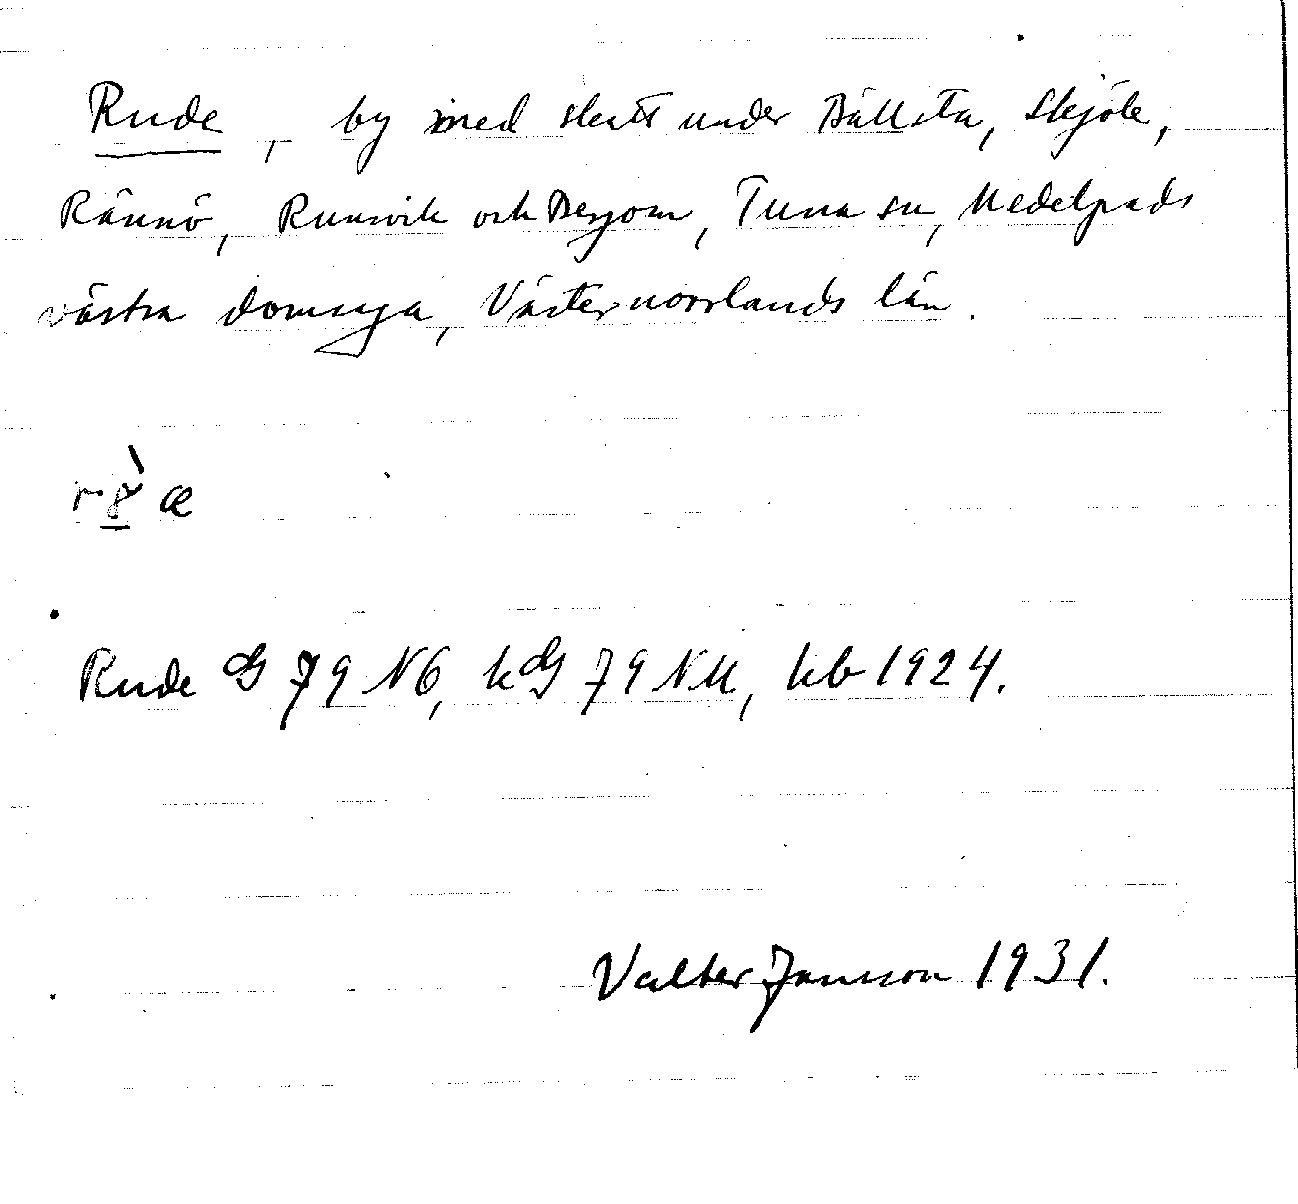 Rude, by med skatt under Bällsta, Skjöle,
Rännö, Runsvik och Bergom, Tuna sn, Medelpads
västra domsaga, Västernorrlands län.
r æ
Rude 79 NO, 79 NU, kb 1924.
Valter Jansson 1931.